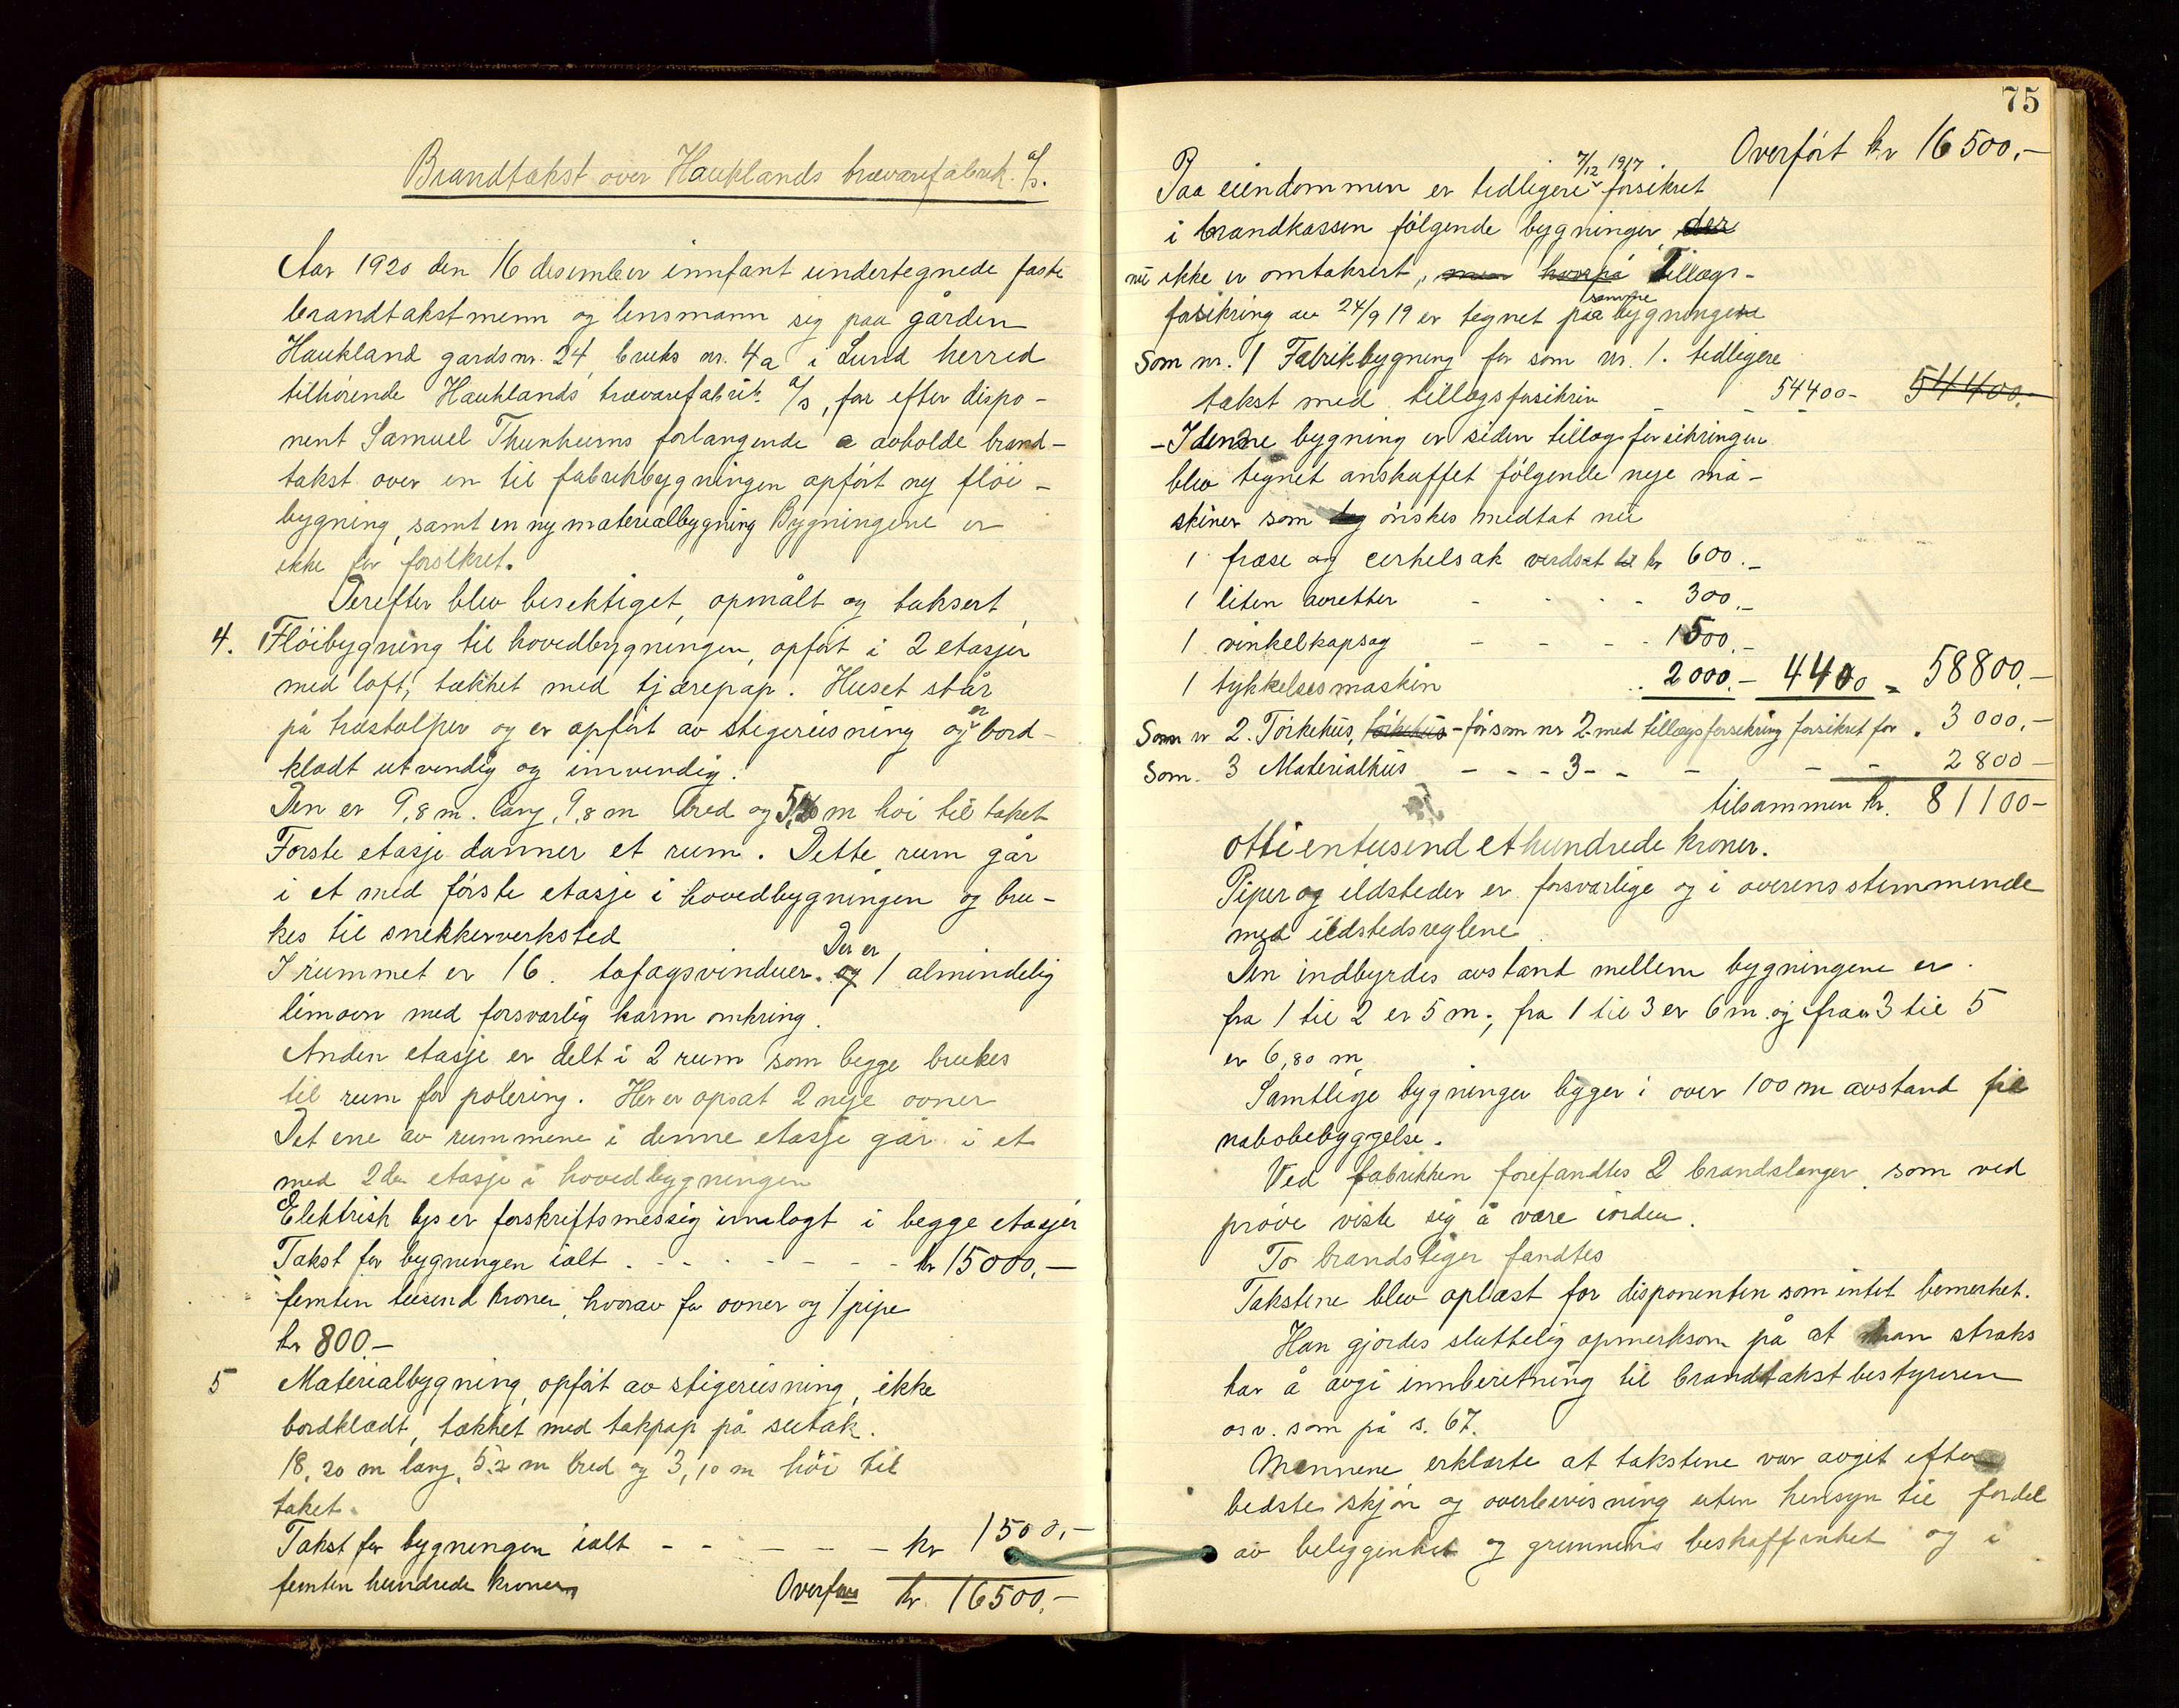 Brandtakst over Hauklands trævarefabrik a/s.
Aar 1920 den 16 desember innfant undertegnede faste
brandtakstmenn og lensmann sig paa gården
Haukland gardsnr. 24, bruks nr. 4a i Lund herred
tilhørende Hauklands trævarefabrik a/s, for efter dispo-
nent Samuel Thunheims forlangende a avholde brand-
takst over en til fabrikbygningen opført ny fløi-
bygning, samt en ny materialbygning Bygningene er
ikke før forsikret.
Derefter blev besiktiget, opmålt og taksert,
4. Fløibygning til hovedbygningen, opført i 2 etasjer
med loft, tækket med tjærepap. Huset står
på træstolper og er opført av stigereisning og er bord-
klædt utvendig og innvendig.
Den er 9,8 m. lang, 9,8 m bred og m høi til taket
Første etasje danner et rum. Dette rum går
i et med første etasje i hovedbygningen og bru-
kes til snekkerverksted
I rummet er 16 tofagsvinduer. og Der er 1 almindelig
limovn med forsvarlig karm omkring.
Anden etasje er delt i 2 rum som begge brukes
til rum for polering. Her er opsat 2 nye ovner
Det ene av rummene i denne etasje går i et
med 2den etasje i hovedbygningen
Elektrisk lys er forskriftsmessig innlagt i begge etasjer
Takst for bygningen ialt - - - - - - - kr 15000.-
femten tusend kroner, hvorav for ovner og 1 pipe
kr 800.-
5 Materialbygning, opført av stigereisning, ikke
bordklædt, tækket med takpap på sutak.
18,20 m lang, 5,2 m bred og 3,10 m høi til
taket.
Takst for bygningen ialt - - - - - - kr 1500,-
femten hundrede kroner, Overføres kr. 16500,-
75
Overført kr 16500,-
Paa eiendommen er tidligere 7/12 1917 forsikret
i brandkassen følgende bygninger, der
nu ikke er omtaksert, men hvorpå Tillægs-
forsikring av 24/9 19 er tegnet paa samme bygningene
Som nr. 1 Fabrikbygning før som nr. 1. tidligere
takst med tillægsforsikrin - - - 54400- 54400.-
- I denne bygning er siden tillægsforsikringen
blev tegnet anskaffet følgende nye ma-
skiner som ønskes medtat nu
1 fræse og cirkelsak verdsat til kr 600.-
1 liten avretter - - - - 300.-
1 vinkelkapsag - - - - 1500.-
1 tykkelsesmaskin 2000.- 4400 = 58800.-
Som nr 2. Tørkehus, tørkehus - før som nr 2 med tillægsforsikring forsikret for 3000,-
Som. 3 Materialhus - - - 3 - - - - - 2800-
tilsammen kr. 81100-
ottientusend ethundrede kroner.
Piper og ildsteder er forsvarlige og i overensstemmende
med ildstedsreglene.
Den indbyrdes avstand mellem bygningene er.
fra 1 til 2 er 5 m., fra 1 til 3 er 6 m og fra 3 til 5
er 6,80 m
Samtlige bygninger ligger i over 100 m avstand fra
nabobebyggelse.
Ved fabrikken forefandtes 2 brandslanger som ved
prøve viste sig å være iorden.
To brandstiger fandtes
Takstene blev oplæst for disponenten som intet bemerket.
Han gjordes sluttelig opmerksom på at han straks
har å avgi innberetning til brandtakstbestyreren
osv. som på s. 67.
Mennene erklærte at takstene var avgit efter
bedste skjøn og overbevisning uten hensyn til fordel
av beliggenhet og grunnens beskaffenhet og i